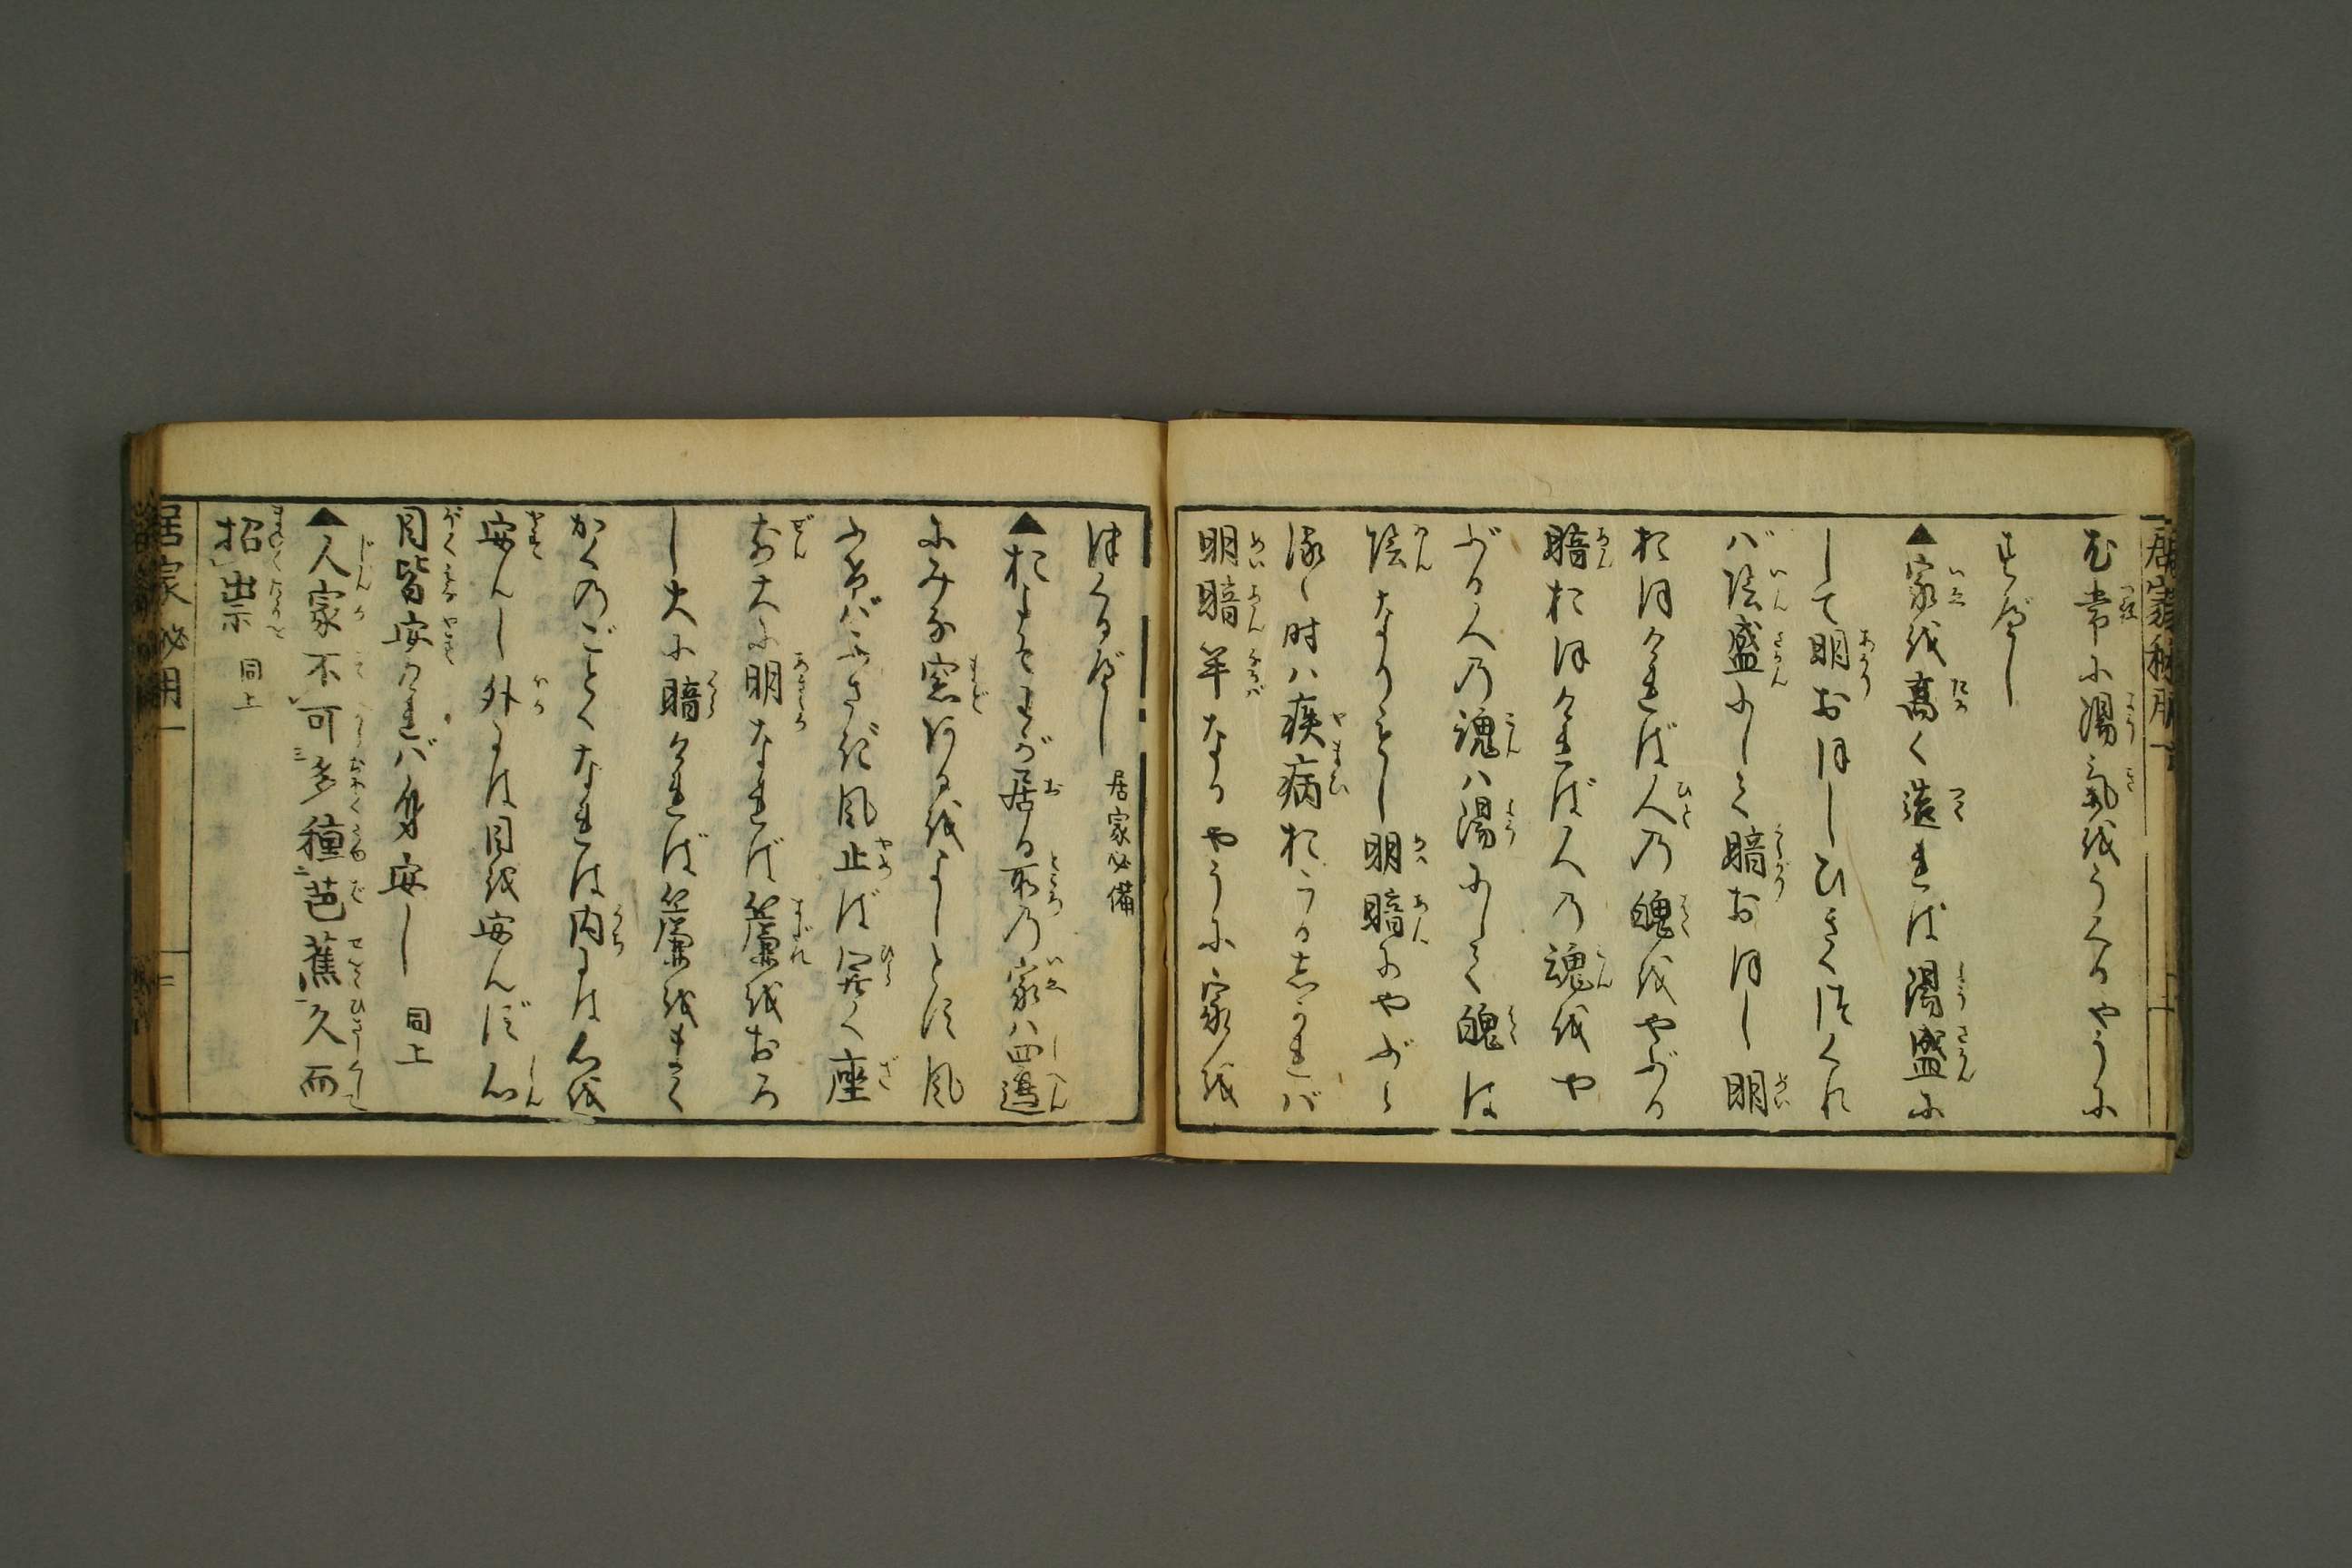 居家秘用一
む常に陽氣をうくるやうに
すべし
▲家を高く造れば陽盛に
して明おほしひきくつくれ
バ陰盛にして暗おほし明
おほければ人の魄をやぶる
暗おほければ人の魂をや
ぶる人の魂ハ陽にして魄は
陰なりもし明暗にやぶら
るゝ時ハ疾病おこるしかれバ
明暗半なるやうに家を
つくるべし 居家必備
▲おしなべて居る所の家ハ四邉
にみな窓ある をよしとす風
ふけバふさぎ風止ば開く座
前大に明なれば簾をおろ
し大に暗ければ簾をまく
かくのごとくなれは内には心を
安んし外には目を安んず心
目皆安けれバ身安し 同上
▲人家不可多種芭蕉久而
招祟 同上
居家必用一
二